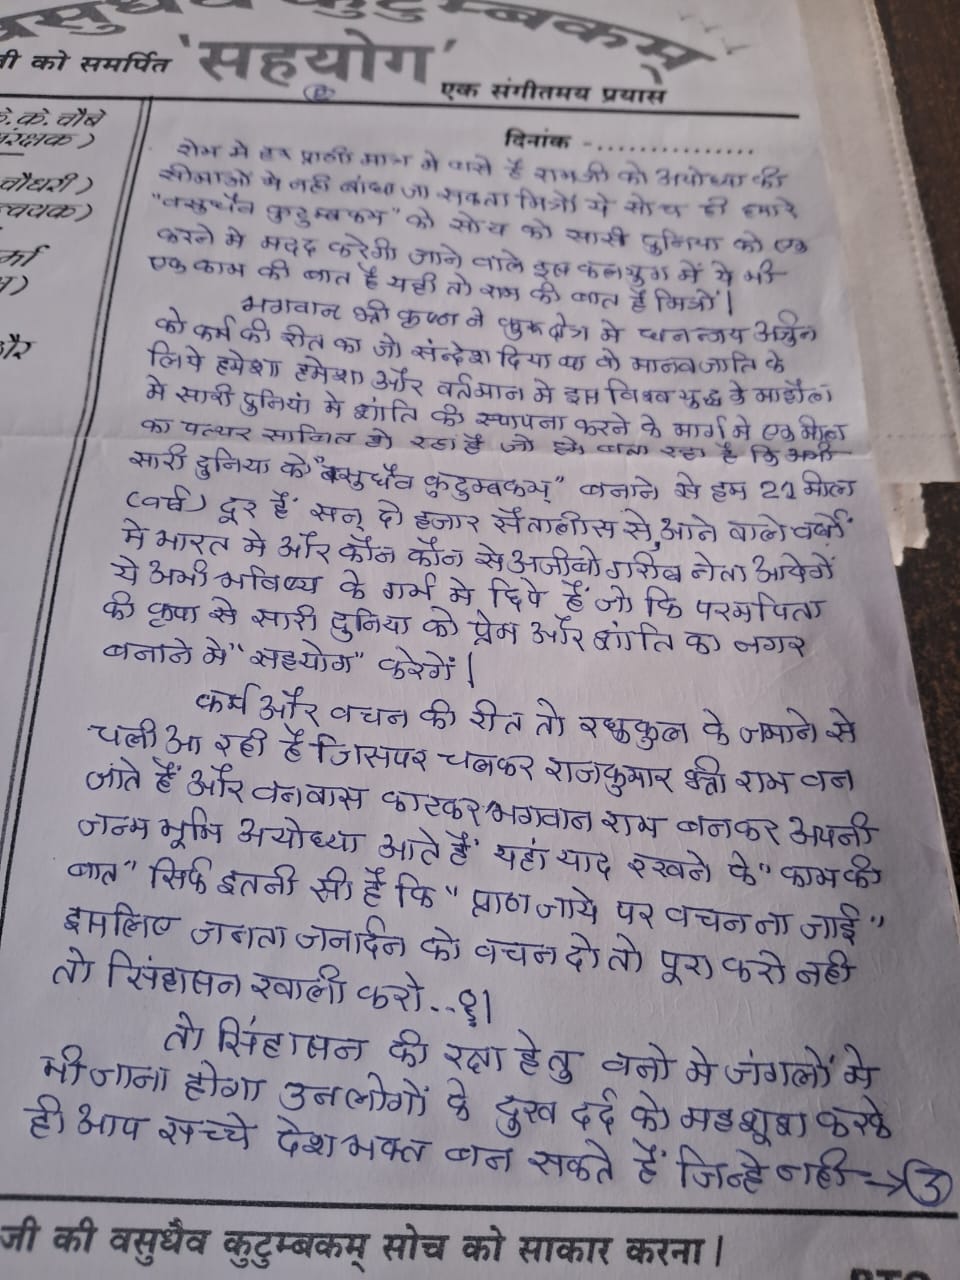 वसुधैव कुटुम्बकम्
को समर्पित 'सहयोग'
एक संगीतमय प्रयास
के.के. चौबे
संरक्षक)
चौधरी)
दिनांक - ................
रोम मे हर प्राणी मात्र मे वासे है रामजी को अयोध्या की
सीमाओं मे नही बांधा जा सकता मित्रों ये सोच ही हमारे
"वसुधैव कुटुम्बकम" की सोच को सारी दुनिया को एक
करने मे मदद करेगी आने वाले इस कलयुग में ये भी
एक काम की बात है यही तो राम की बात है मित्रों।
भगवान श्री कृष्ण ने कुरूक्षेत्र मे धनन्जय अर्जुन
को कर्म की रीत का जो संन्देश दिया था वो मानवजाति के
लिये हमेशा हमेशा और वर्तमान मे इस विश्व युद्ध के माहौल
मे सारी दुनियां मे शांति की स्थापना करने के मार्ग मे एक मील
का पत्थर साबित हो रहा है जो हमे बता रहा है कि अभी
सारी दुनिया को "वसुधैव कुटुम्बकम्" बनाने से हम 21 मील
(वर्ष) दूर हैं सन् दो हजार सैंतालीस से, आने वाले वर्षों
मे भारत मे और कौन कौन से अजीबो गरीब नेता आयेगें
ये अभी भविष्य के गर्भ मे छिपे हैं जो कि परमपिता
की कृपा से सारी दुनिया को प्रेम और शांति का नगर
बनाने मे "सहयोग" करेगें।
कर्म और वचन की रीत तो रघुकुल के जमाने से
चली आ रही है जिसपर चलकर राजकुमार श्री राम वन
जाते हैं और वनवास काटकर भगवान राम बनकर अपनी
जन्म भूमि अयोध्या आते हैं यहां याद रखने के "काम की
बात" सिर्फ इतनी सी है कि "प्राण जाये पर वचन ना जाई"
इसलिए जनता जनार्दन को वचन दो तो पूरा करो नही
तो सिंहासन खाली करो..
तो सिंहासन की रक्षा हेतु वनो मे जंगलों मे
भी जाना होगा उन लोगों के दुख दर्द को महशूश करके
ही आप सच्चे देश भक्त बन सकते हैं जिन्हे नही → 3
जी की वसुधैव कुटुम्बकम् सोच को साकार करना।